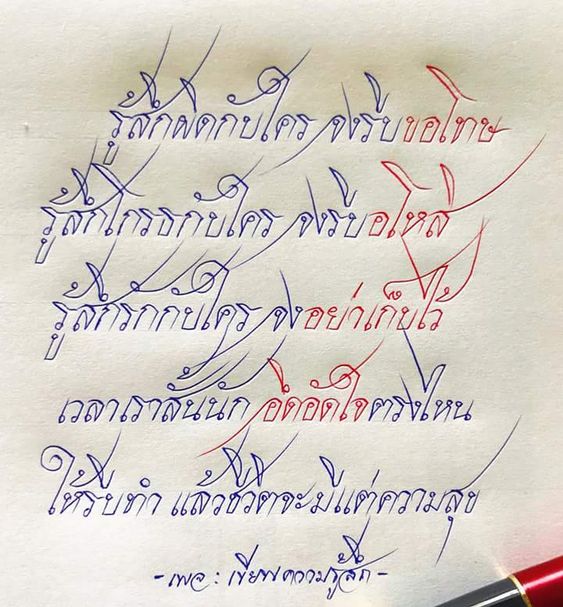 รู้สึกผิดกับใคร จงรีบขอโทษ
รู้สึกโกรธกับใคร จงรีบอโหสิ
รู้สึกรักกับใคร จงอย่าเก็บไว้
เวลาเราสั้นนัก อึดอัดใจตรงไหน
ให้รีบทำ แล้วชีวิตจะมีแต่ความสุข
- เพจ : เขียนความรู้สึก -